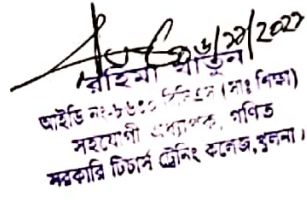 ২৬/১২/২০২২
রহিমা খাতুন
আইডি নং-৮৬২০ বিসিএস (সাঃ শিক্ষা)
সহযোগী অধ্যাপক, গণিত
সরকারি টিচার্স ট্রেনিং কলেজ, খুলনা।